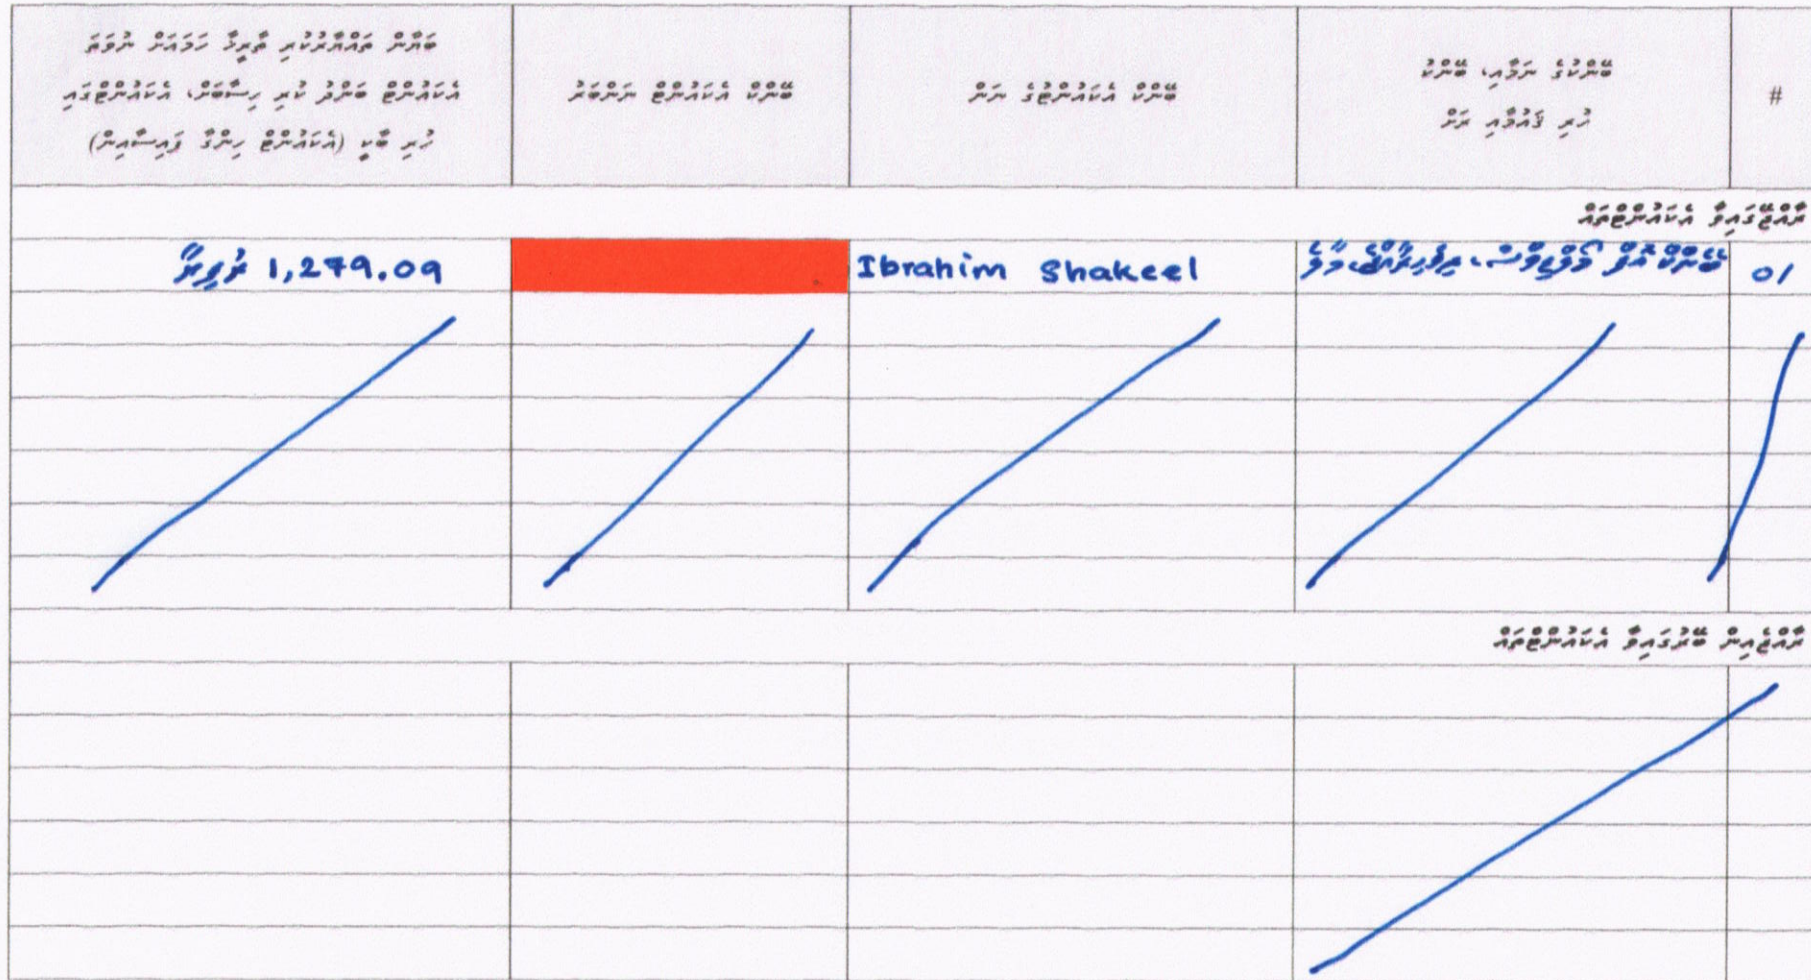 #
ބޭންކުގެ ނަމާއި، ބޭންކު
ހުރި ޤައުމާއި ރަށް
ބޭންކް އެކައުންޓުގެ ނަން
ބޭންކް އެކައުންޓް ނަންބަރު
ބަޔާން ތައްޔާރުކުރި ތާރީޚާ ހަމައަށް ނުވަތަ
އެކައުންޓް ބަންދު ކުރި ހިސާބަށް، އެކައުންޓްގައި
ހުރި ބާކީ (އެކައުންޓް ހިންގާ ފައިސާއިން)
ރާއްޖޭގައިވާ އެކައުންޓްތައް
01
ބޭންކް އޮފް މޯލްޑިވްސް، ދިވެހިރާއްޖެ، މާލެ
Ibrahim Shakeel
1,279.09 ރުފިޔާ
ރާއްޖެއިން ބޭރުގައިވާ އެކައުންޓްތައް